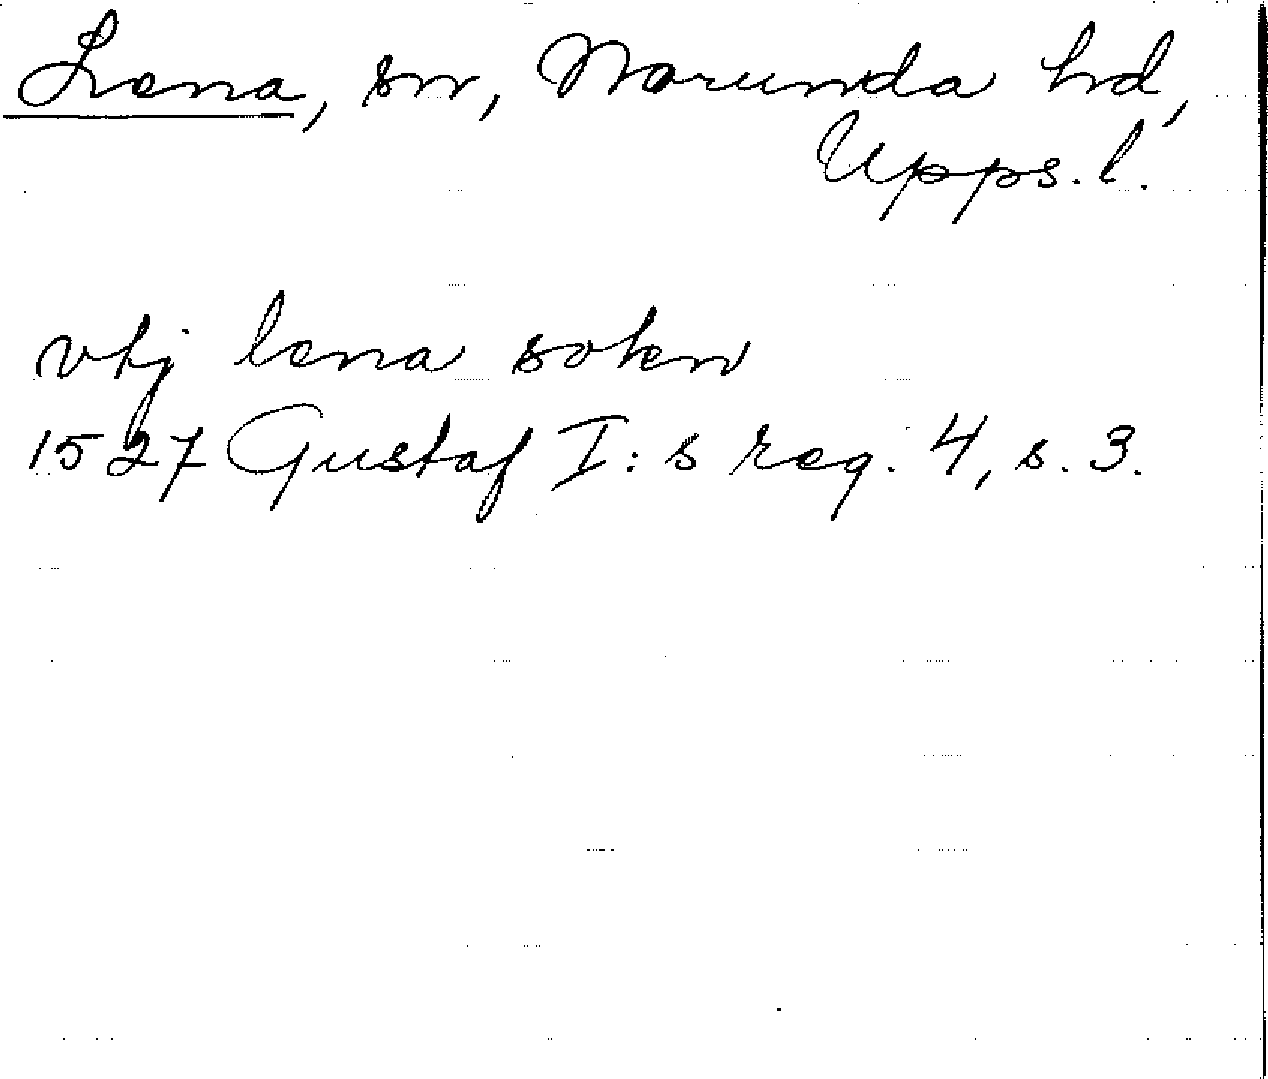 Lena, sn, Norunda hd,
Upps. l.
vtj lena sokn
1527 Gustaf I:s reg. 4, s. 3.